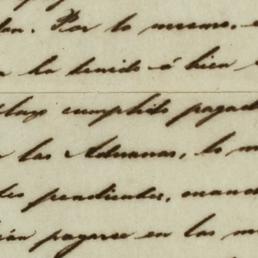 dan. Por lo mismo,
ha tenido á bien
plazo cumplido pagad
las Aduanas, lo m
des pendientes, cuand
rán pagarse en las m